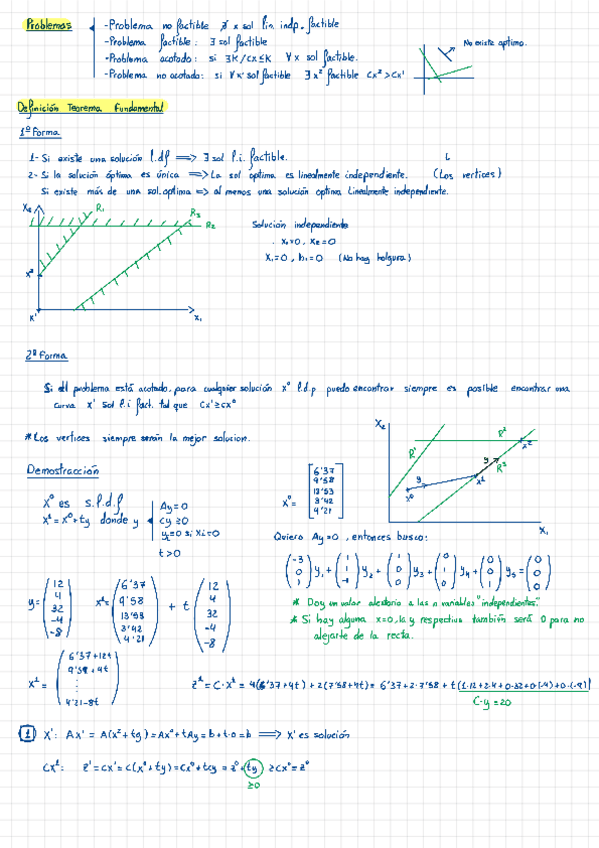 Problemas
-Problema no factible ∄ x sol lin. indp. factible
-Problema factible: ∃ sol factible
-Problema acotado: si ∃K/cx≤K ∀x sol factible.
-Problema no acotado: si ∀x' sol factible ∃ x² factible cx²>cx'
No existe optimo.
Definición Teorema Fundamental
1ª Forma
1- Si existe una solución l.df ⟹ ∃ sol l.i. factible.
2- Si la solución óptima es única ⟹ La sol optima es linealmente independiente. (Los vertices)
Si existe más de una sol. optima ⟹ al menos una solución optima Linealmente independiente.
X₂
R₁
R₃
R₂
X²
X'
X₁
Solución independiente
X₁=0, X₂=0
X₁=0, h₁=0 (No hay holgura)
2ª Forma
Si el problema está acotado, para cualquier solución x⁰ l.d.p puedo encontrar siempre es posible encontrar una
curva x' sol l.i fact. tal que cx'≥cx⁰
*Los vertices siempre serán la mejor solucion.
Demostracción
X⁰ es s.l.d.f
X¹=X⁰+ty donde y
Ay=0
cy≥0
y₁=0 si Xi=0
t>0
X⁰=
6'37
9'58
13'53
3'42
4'21
X₂
R¹
R²
R³
X²
y
y
X¹
X⁰
X₁
Quiero Ay=0, entonces busco:
(-3 0 1) y₁ + (1 1 -1) y₂ + (1 0 0) y₃ + (0 1 0) y₄ + (0 0 1) y₅ = (0 0 0)
* Doy un valor aleatorio a las n variables "independientes."
* Si hay alguna x=0, la y respectiva también será 0 para no
alejarte de la recta.
y= (12 4 32 -4 -8) X¹= (6'37 9'58 13'53 3'42 4'21) + t (12 4 32 -4 -8)
X¹=
6'37+12t
9'58+4t
⋮
4'21-8t
z¹=C·X¹= 4(6'37+4t)+2(7'58+4t)= 6'37+2·7'58+t(1·12+2·4+0·32+0(-4)+0·(-9))
C·y=20
1 X': Ax' = A(x⁰+ty)=Ax⁰+tAy=b+t·0=b ⟹ X' es solución
CX¹: z'=cx'=c(x⁰+ty)=cx⁰+tcy=z⁰+ty ≥cx⁰=z⁰
≥0